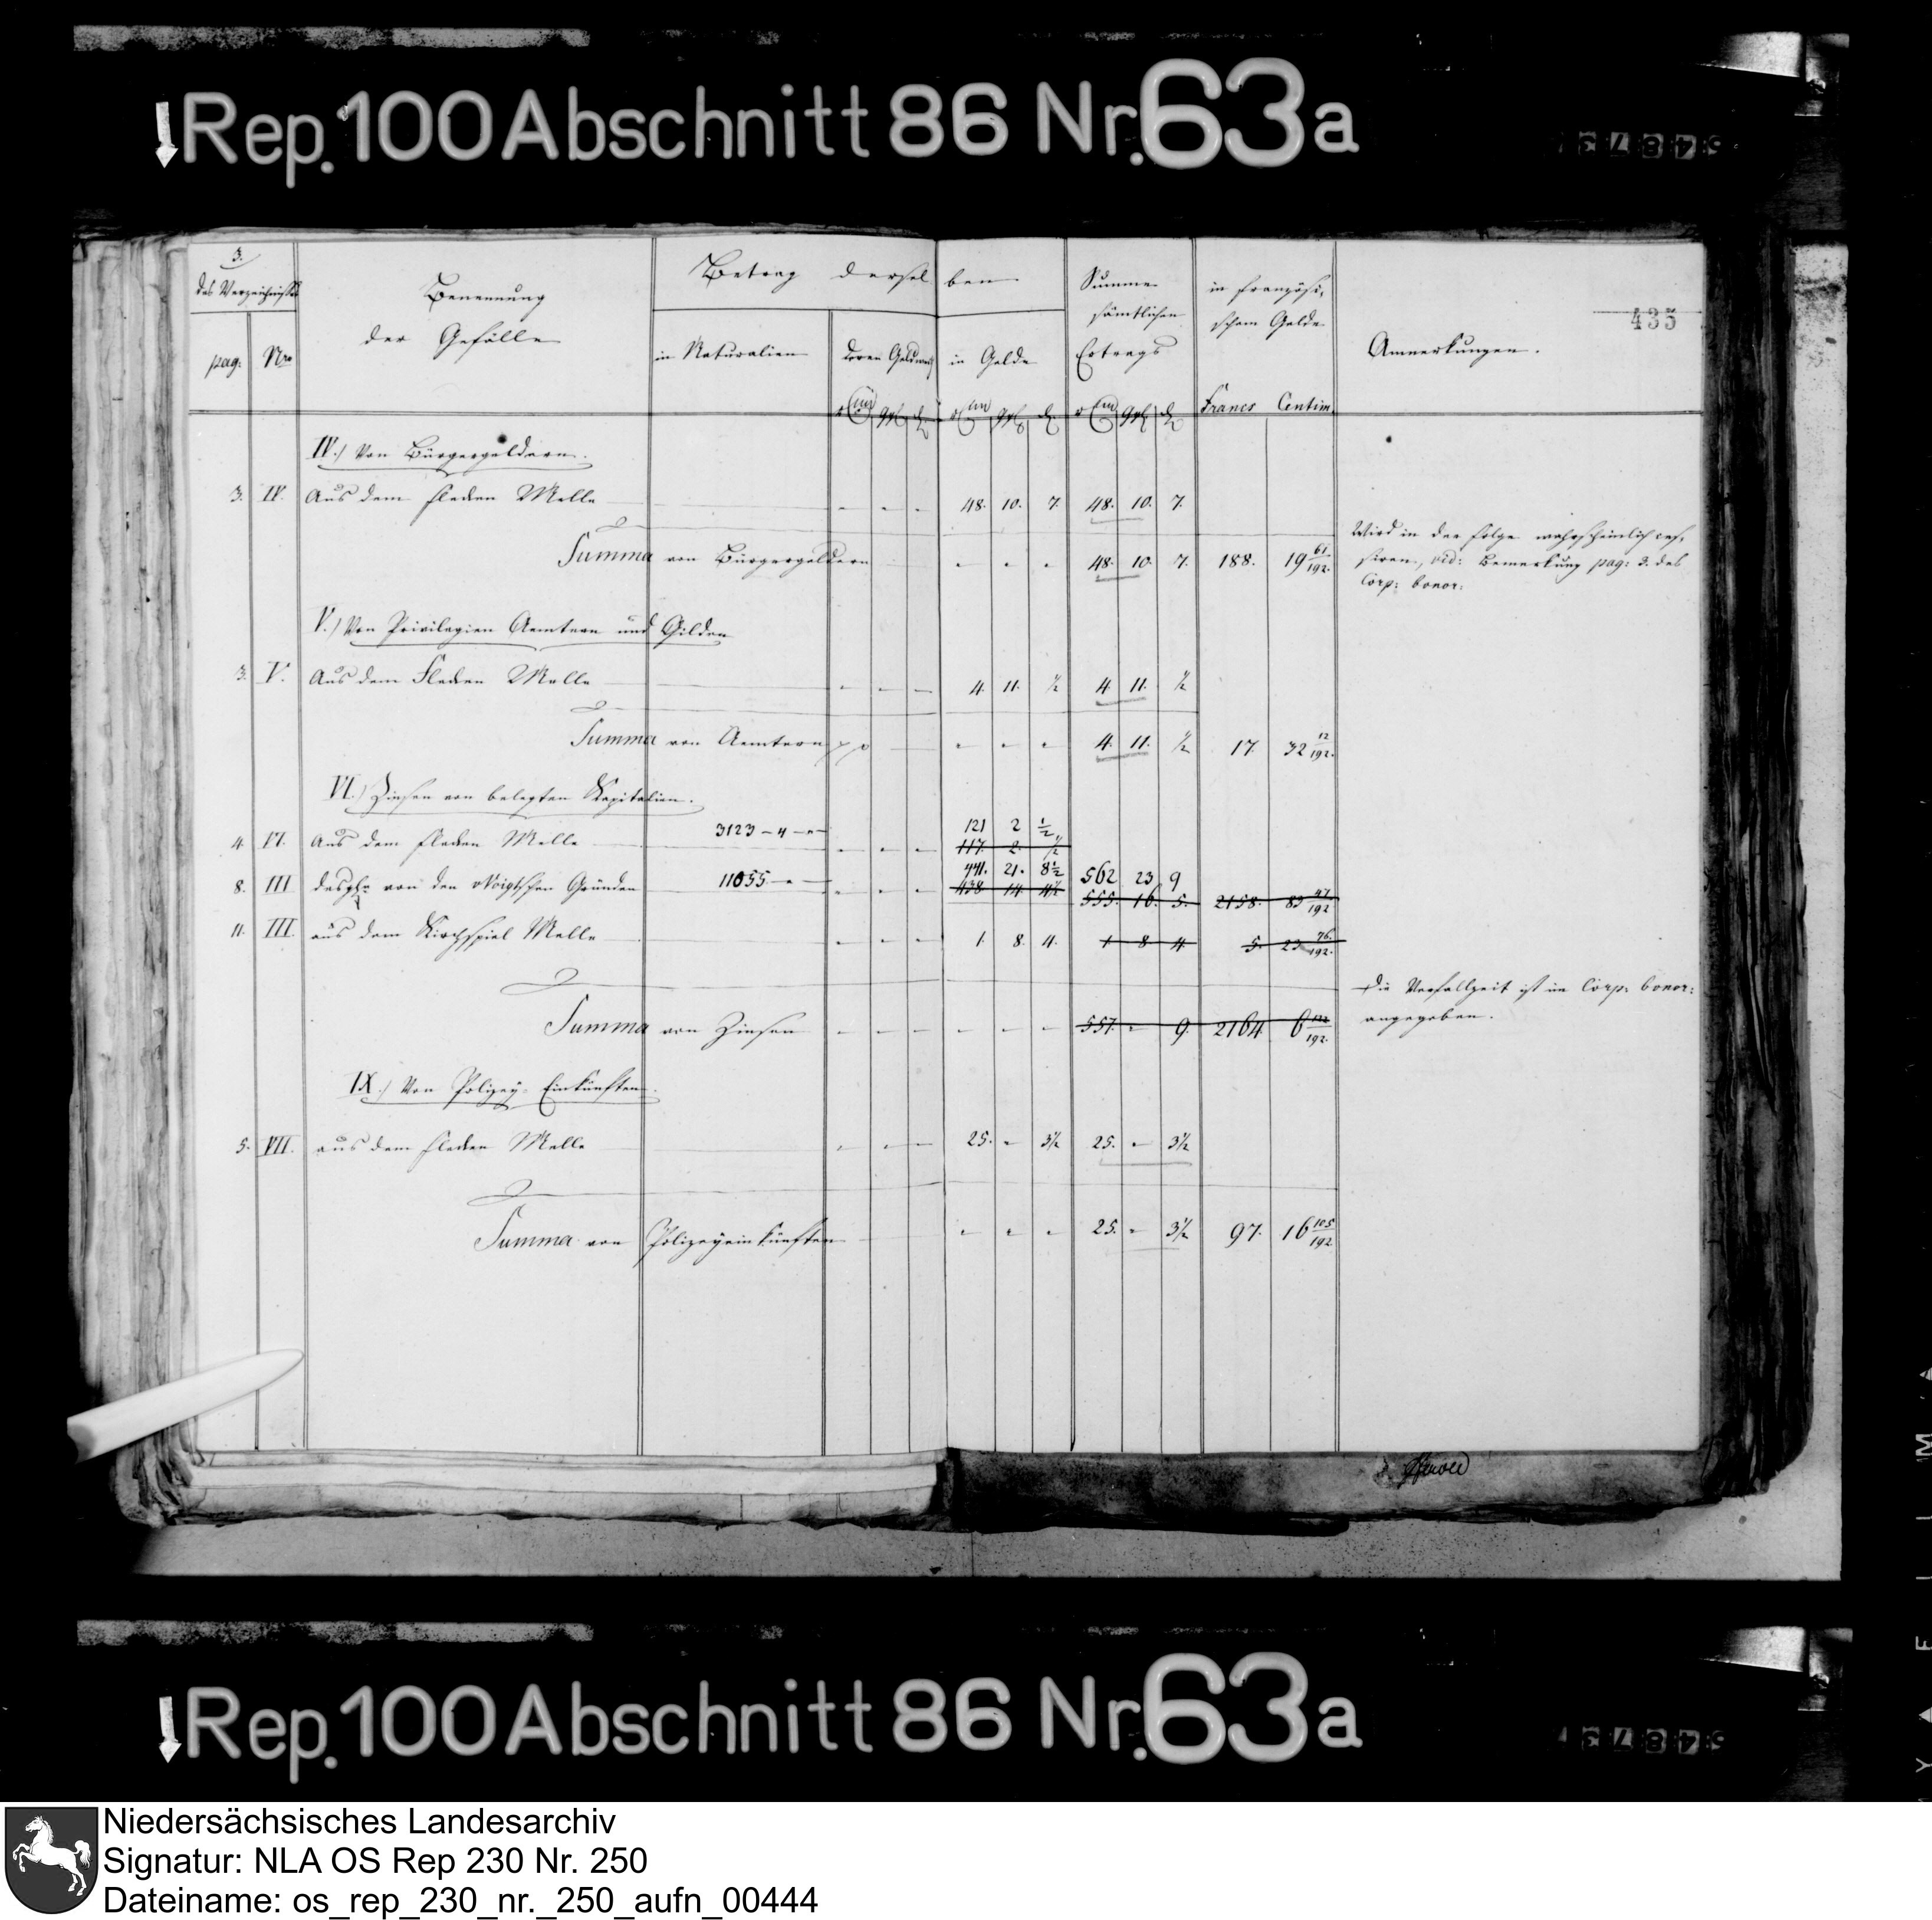 Rep. 100 Abschnitt 86 Nr. 63a
3.
des Verzeichnisses
pag: Nro
Benennung
der Gefälle
Betrag dersel ben
in Naturalien
deren Geldwerth
in Gelde
Summe
sämtlichen
Ertrags
in französi,
schem Gelde
Francs Centim.
Anmerkungen.
435
IV.) Von Bürgergeldern.
3. IV. Aus dem flecken Melle 48. 10. 7. 48. 10. 7.
Summa von Bürgergeldern 48. 10. 7. 188. 19 61/192.
Wird in der folge wahrscheinlich ces,
siren, vid: Bemerkung pag: 3. des
Corp: bonor:
V.) Von Privilegien Aemtern und Gilden
3. V. Aus dem Flecken Melle 4. 11. ½ 4. 11. ½
Summa von Aemtern 4. 11. ½ 17. 32 12/192.
VI.) Zinsen von belegten Kapitalien.
4. VI. Aus dem flecken Melle 3123 - 4 - 121 2 ½
117. 2. ½
8. III von den Voigtschen Gründen 11055 - 441. 21. 8½ 562 23 9
438 14 4½ 555. 16. 5. 2158. 83 47/192
11. III. aus dem Kirchspiel Melle 1. 8. 4. 1 8 4 5. 23 76/192.
Summa von Zinsen 557. - 9. 2164. 6 122/192.
Die Verfallzeit ist im Corp: bonor:
angegeben.
IX.) Von Polizey-Einkünften.
5. VII. aus dem flecken Melle 25. - 3½ 25. - 3½
Summa von Polizeyeinkünften 25. - 3½ 97. 16 105/192
Rep. 100 Abschnitt 86 Nr. 63a
Niedersächsisches Landesarchiv
Signatur: NLA OS Rep 230 Nr. 250
Dateiname: os_rep_230_nr._250_aufn_00444